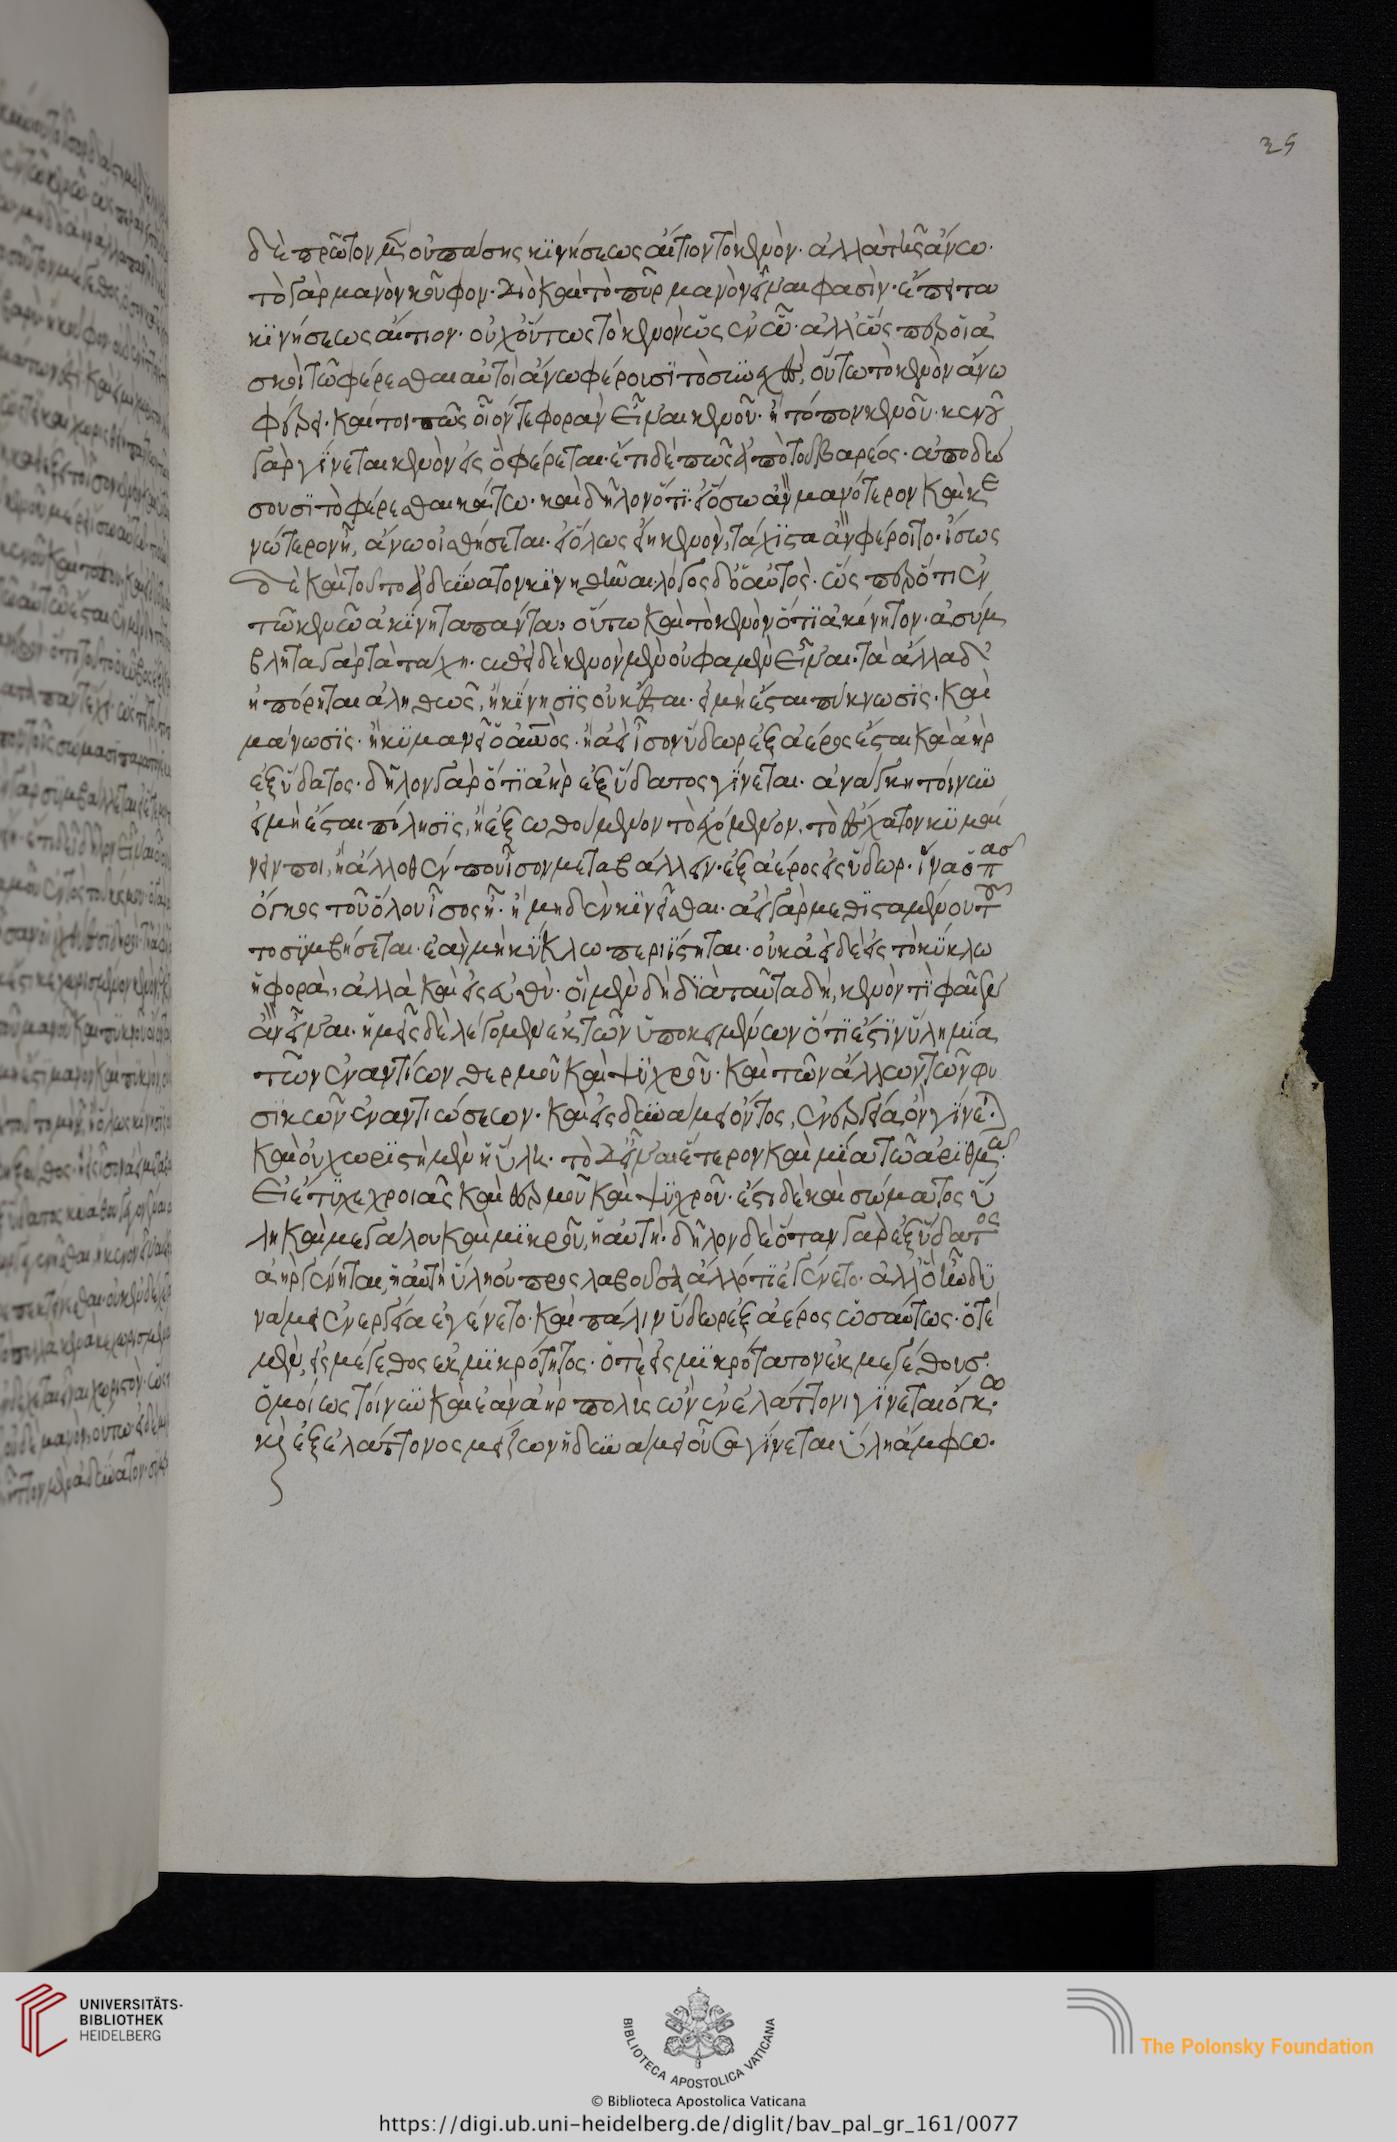 δὲ πρῶτον μὲν οὐ πάσης κϊνήσεως αἴτιον τὸ κενὸν· ἀλλὰ τῆς ἄνω·
τὸ γὰρ μανὸν κοῦφον· διὸ καὶ τὸ πῦρ μανὸν εἶναι φασὶν· ἔπειτα
κϊνήσεως αἴτιον· οὐχ οὕτως τὸ κενὸν ὡς ἐν ὧ· ἀλλ' ὥσπερ οἱ ἀ
σκοὶ τῶ φέρεσθαι αὐτοὶ ἄνω φέρουσϊ τὸ συνεχὲς, οὕτω τὸ κενὸν ἄνω
φέρει· καίτοι πῶς οἷόν τε φορὰν εἶναι κενοῦ· ἢ τόπον κενοῦ· κενοῦ
γὰρ γίνεται κενὸν εἰς ὃ φέρεται· ἔτι δὲ πῶς ἐπὶ τοῦ βαρέος· ἀποδώ
σουσϊ τὸ φέρεσθαι κάτω· καὶ δῆλον ὅτϊ· εἰ ὅσω ἂν μανότερον καὶ κε
νώτερον ᾖ, ἄνω οἰσθήσεται· εἰ ὅλως εἴη κενὸν, τάχϊστα ἂν φέροιτο· ἴσως
δὲ καὶ τοῦτο ἀδύνατον κϊνηθῆναι· λόγος δ' ὁ αὐτὸς· ὥσπερ ὅτι ἐν
τῶ κενῶ ἀκίνητα πάντα, οὕτω καὶ τὸ κενὸν ὅτϊ ἀκίνητον· ἀσύμ
βλητα γὰρ τὰ τάχη· ἐπεὶ δὲ κενὸν μὲν οὐ φαμὲν εἶναι· τὰ ἄλλα δ'
ἠπόρηται ἀληθῶς, ἢ κίνησϊς οὐκ ἔσται· εἰ μὴ ἔσται πύκνωσϊς· καὶ
μάνωσϊς· ἢ κϋμανεῖ ὁ οὐρανὸς· ἢ ἀεὶ ἴσον ὕδωρ ἐξ ἀέρος ἔσται καὶ ἀὴρ
ἐξ ὕδατος· δῆλον γὰρ ὅτϊ ἀὴρ ἐξ ὕδατος γίνεται· ἀνάγκη τοίνυν
εἰ μὴ ἔσται πίλησϊς, ἢ ἐξωθούμενον τὸ ἐχόμενον, τὸ ἔσχατον κϋμαί
νειν ποι, ἢ ἄλλοθι που ἴσον μεταβάλλειν· ἐξ ἀέρος εἰς ὕδωρ· ἵνα ὁ πᾶς
ὄγκος τοῦ ὅλου ἴσος ᾖ· ἢ μηδὲν κϊνεῖσθαι· ἀεὶ γὰρ μεθϊσταμένου τοῦ
το συμβήσεται· ἐὰν μὴ κύκλω περιΐστηται· οὐκ ἀεὶ δὲ εἰς τὸ κύκλω
ἡ φορὰ, ἀλλὰ καὶ εἰς εὐθὺ· οἱ μὲν δὴ δϊὰ ταῦτα δὴ, κενὸν τϊ φαῖεν
ἂν εἶναι· ἡμεῖς δὲ λέγομεν ἐκ τῶν ὑποκειμένων ὅτϊ ἔστϊν ὕλη μία
τῶν ἐναντίων θερμοῦ καὶ ψϋχροῦ· καὶ τῶν ἄλλων τῶν φυ
σϊκῶν ἐναντιώσεων· καὶ ἐκ δυνάμει ὄντος, ἐνεργεία ὂν γίνεται·
καὶ οὐ χωρϊστὴ μὲν ἡ ὕλη· τὸ δ' εἶναι ἕτερον καὶ μία τῶ ἀρϊθμῶ·
εἰ ἔτϋχε χροιᾶς καὶ θερμοῦ καὶ ψϋχροῦ· ἔστι δὲ καὶ σώματος ὕ
λη καὶ μεγάλου καὶ μϊκροῦ, ἡ αὐτὴ· δῆλον δὲ ὅταν γὰρ ἐξ ὕδατος
ἀὴρ γένηται, ἡ αὐτὴ ὕλη οὐ προσλαβοῦσα ἄλλό τϊ ἐγένετο· ἀλλ' ὃ ἦν δϋ
νάμει ἐνεργεία ἐγένετο· καὶ πάλιν ὕδωρ ἐξ ἀέρος ὡσαύτως· ὁτὲ
μὲν, εἰς μέγεθος ἐκ μϊκρότητος· ὁτὲ εἰς μϊκρότατον ἐκ μεγέθους·
ὁμοίως τοίνυν καὶ ἐὰν ἀὴρ πολὺς ὢν ἐν ἐλάττονι γίνεται ὄγκω·
καὶ ἐξ ἐλάττονος μείζων ἡ δυνάμει οὖσα γίνεται ὕλη ἄμφω·
UNIVERSITÄTS-
BIBLIOTHEK
HEIDELBERG
BIBLIOTECA APOSTOLICA VATICANA
© Biblioteca Apostolica Vaticana
The Polonsky Foundation
https://digi.ub.uni-heidelberg.de/diglit/bav_pal_gr_161/0077